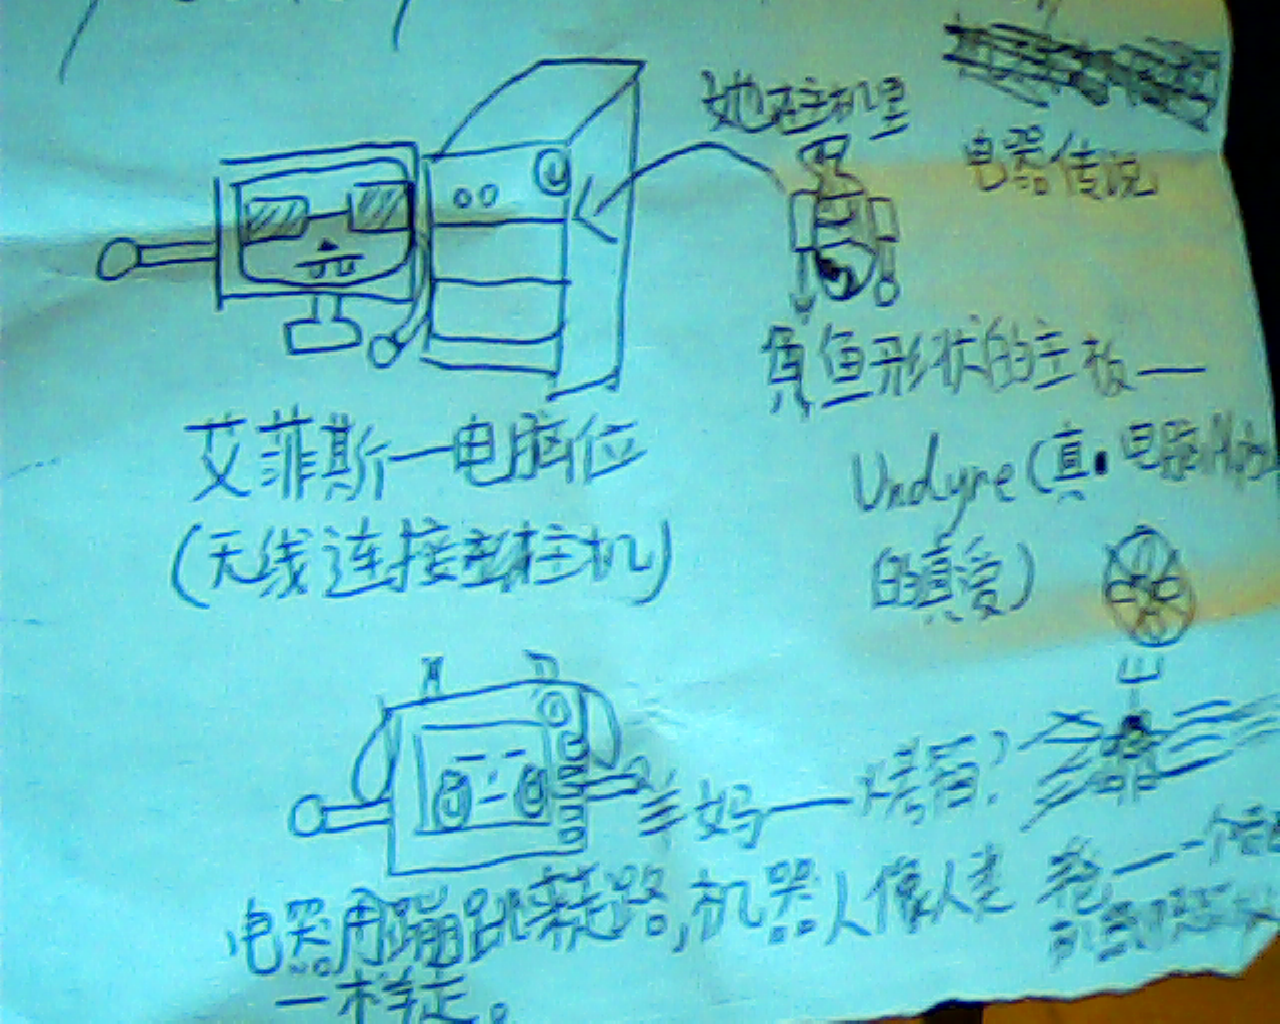 她在主机里
电器传说
鱼形状的主板—
Undyne(真·电脑
的真爱)
艾菲斯—电脑位
(无线连接主机)
羊妈——烤箱?
电器用蹦跳来走路,机器人像人类
一样走。
爸——一个